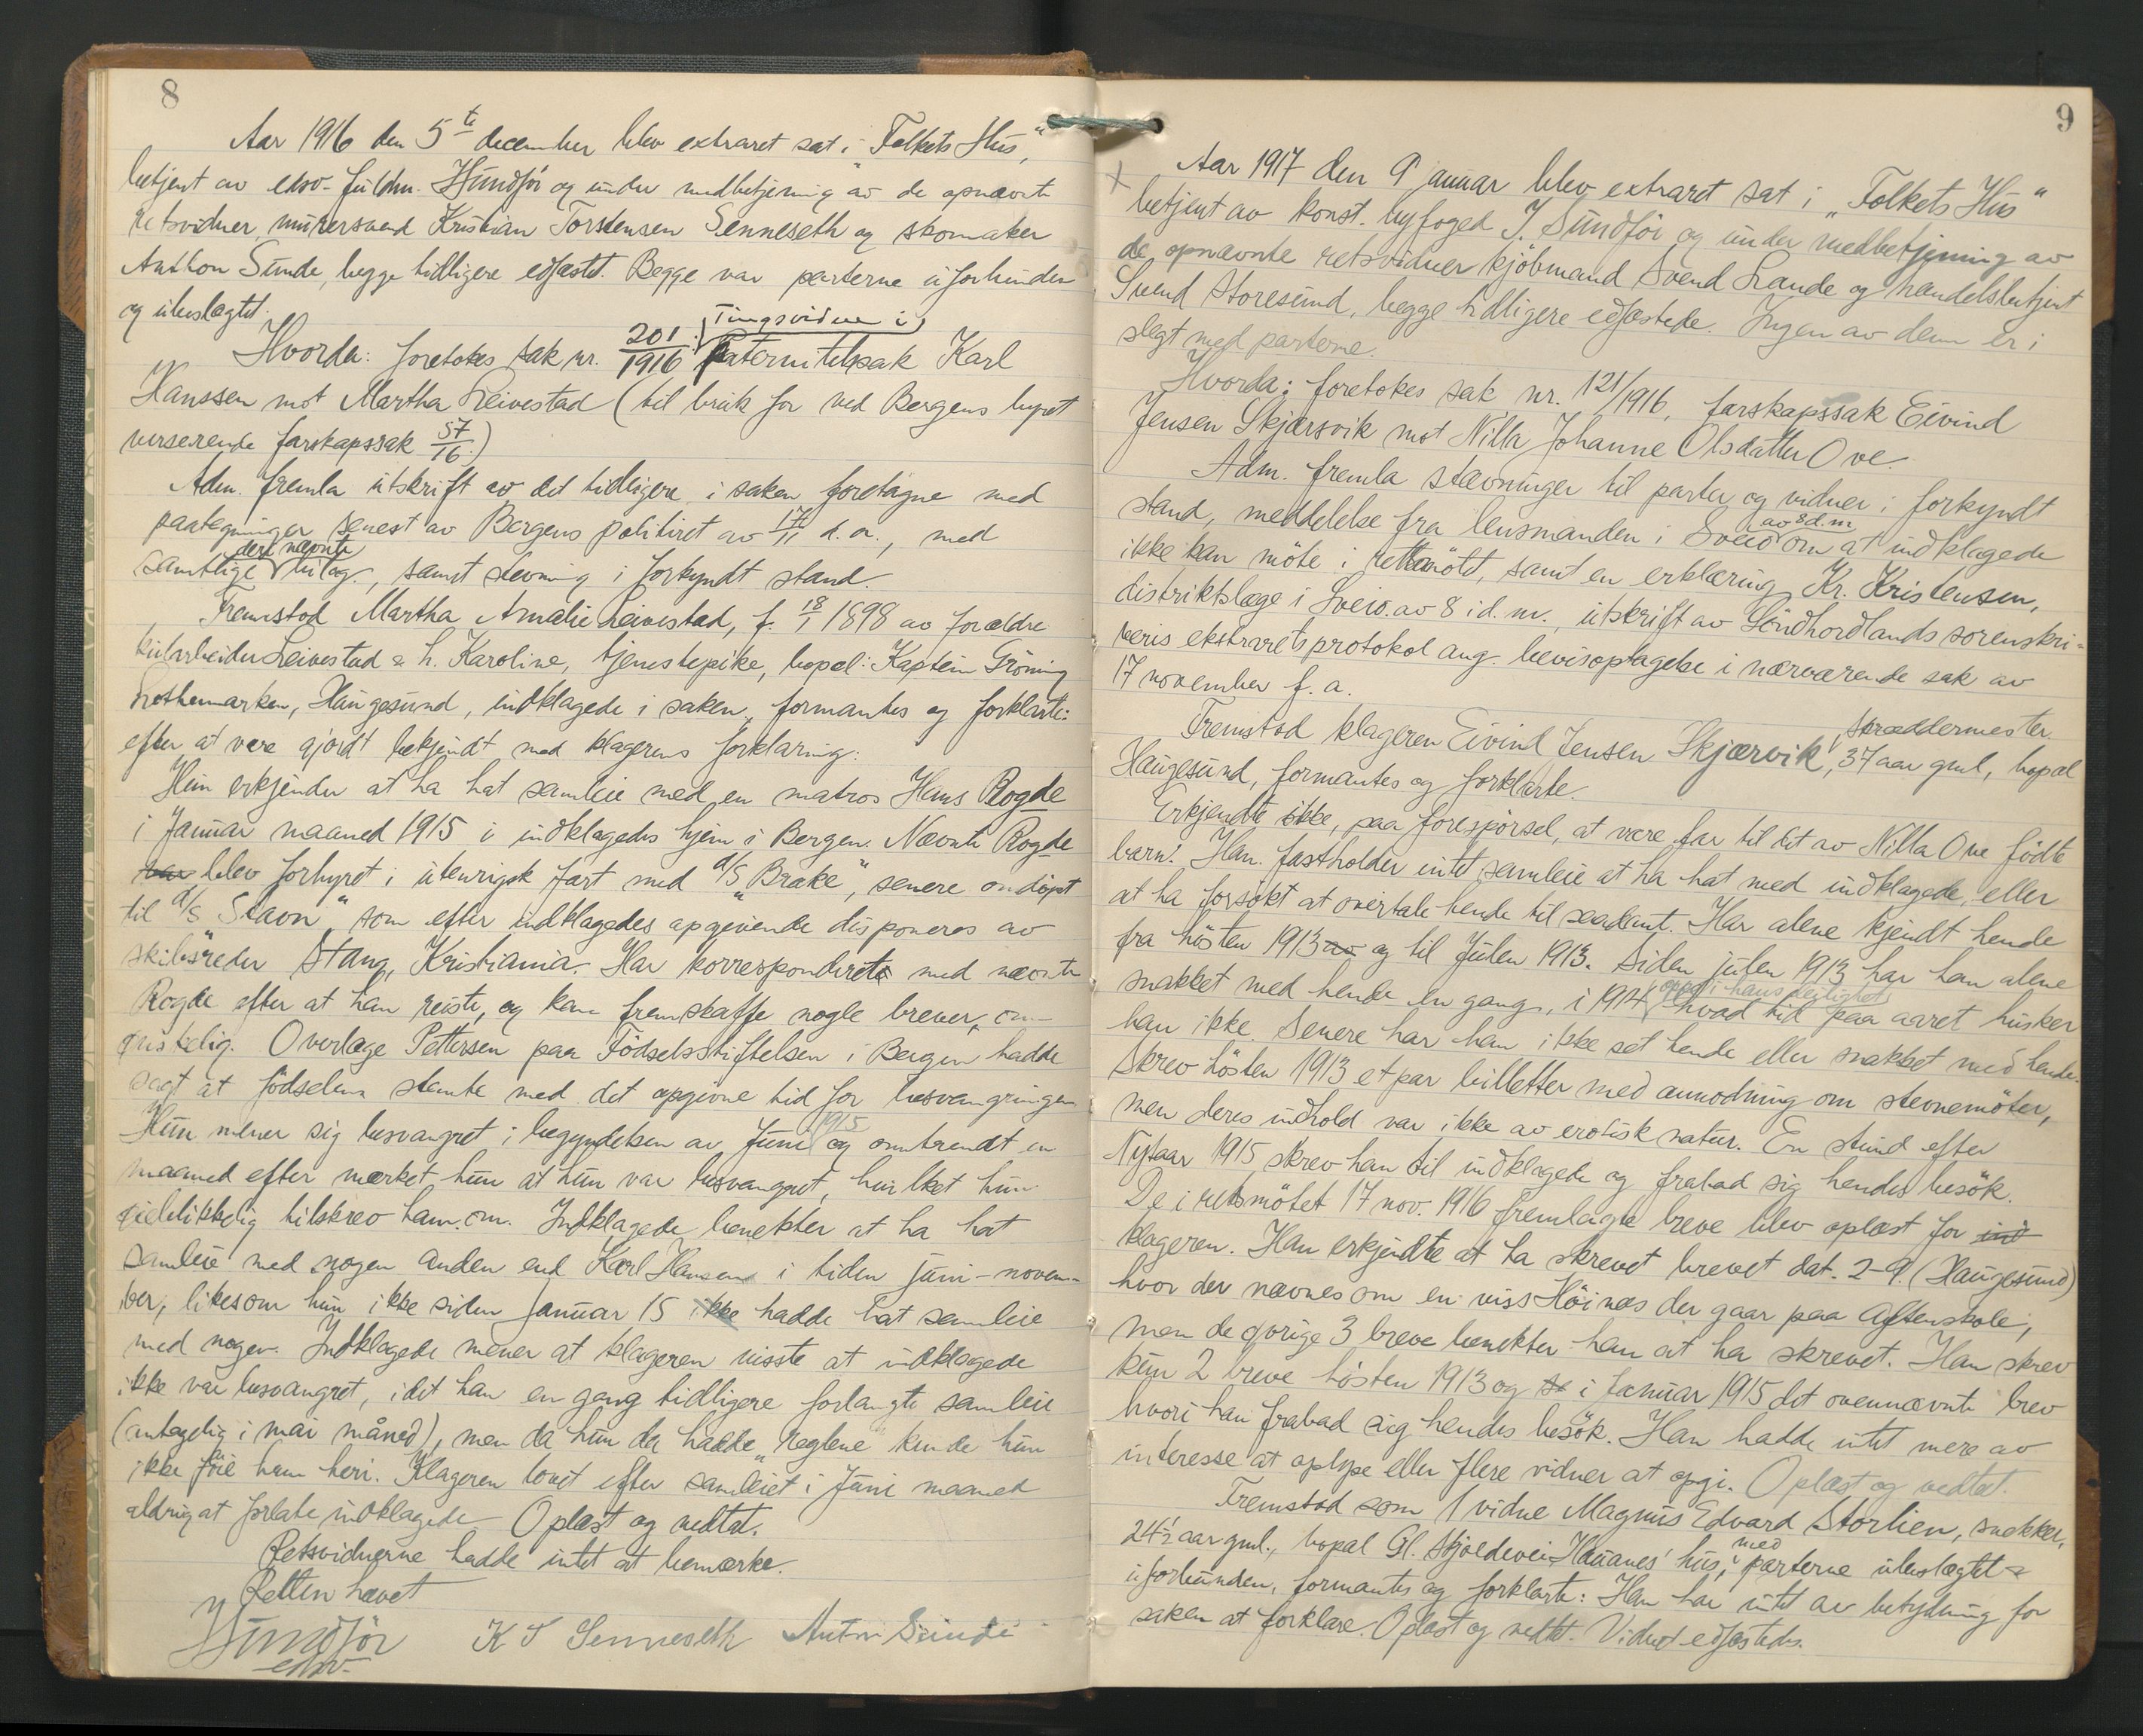 8
Aar 1916 den 5te december blev extraret sat i „Folkets Hus",
betjent av edsv. fuldm. J. Sundför og under medbetjening av de opnævnte
retsvidner, murersvend Kristian Torstensen Senneseth og skomaker
Anthon Sunde, begge tidligere edfæstet. Begge var parterne uforbunden
og ubeslægtet.
Hvorda: foretokes sak nr. 201/1916 Tingsvidne i Paternitetssak Karl
Hanssen mot Martha Leivestad (til bruk for ved Bergens byret
verserende farskapssak 57/16.)
Adm. fremla utskrift av det tidligere i saken foretagne med
paategninger senest av Bergens politiret av 17/11 d.a., med
samtlige deri nævnte bilag., samt stevning i forkyndt stand.
Fremstod Martha Amalie Leivestad, f. 18/1 1898 av forældre
Leivestad & h. Karoline, tjenestepike, bopæl: Kaptein Gröning
Lothemarken, Haugesund, indklagede i saken, formantes og forklarte:
efter at være gjordt bekjendt med klagerens forklaring:
Hun erkjender at ha hat samleie med en matros Hans Rogde
i Januar maaned 1915 i indklagedes hjem i Bergen. Nævnte Rogde
var blev forhyret i utenrigsk fart med d/s „Brake", senere omdöpt
til d/s „Stavn" som efter indklagedes opgivende disponeres av
skibsreder Stang, Kristiania. Har korresponderet med nævnte
Rogde efter at han reiste, og kan fremskaffe nogle brever, om-
ønskelig. Overlæge Pettersen paa Födselsstiftelsen i Bergen hadde
sagt at födselen stemte med det opgivne tid for besvangringen
Hun mener sig besvangret i begyndelsen av Juni 1915 og omtrendt en
maaned efter merket hun at hun var besvangret, hvilket hun
øieblikkelig tilskrev ham om. Indklagede benekter at ha hat
samleie med nogen anden end Karl Hansen i tiden juni-novem-
ber, likesom hun ikke siden Januar 15 ikke hadde hat samleie
med nogen. Indklagede mener at klageren visste at indklagede
ikke var besvangret, idet han en gang tidligere forlangte samleie
(antagelig i mai måned), men da hun da hadde „reglene" kunde hun
ikke föie ham heri. Klageren lovet efter samleiet i Juni maaned
aldrig at forlate indklagede. Oplæst og vedtat.
Retsvidnerne hadde intet at bemærke.
Retten hævet
J Sundför K T Senneseth Anton Sunde
edsv.
9
Aar 1917 den 9 januar blev extraret sat i „Folkets Hus"
betjent av konst. byfoged J. Sundför og under medbetjening av
de opnævnte retsvidner kjöbmand Svend Lande og handelsbetjent
Svend Storesund, begge tidligere edfæstede. Ingen av dem er i
slegt med parterne.
Hvorda: foretokes sak nr. 121/1916, farskapssak Eivind
Jensen Skjærsvik mot Nilla Johanne Olsdatter Ove.
Adm. fremla stævninger til parter og vidner i forkyndt
stand, meddelelse fra lensmanden i Sveio av 8 d.m. om at indklagede
ikke kan möte i rettsmötet, samt en erklæring Kr. Kristensen,
distriktslæge i Sveio. av 8 i d.m., utskrift av Söndhordlands sorenskri-
veris ekstraretsprotokol ang. bevisoptagelse i nærværende sak av
17 november f.a.
Fremstod klageren Eivind Jensen Skjærvik, skræddermester, 37 aar gml, bopæl
Haugesund, formantes og forklarte.
Erkjendte ikke, paa forespörsel, at være far til det av Nilla Ove födte
barn. Han fastholder intet samleie at ha hat med indklagede, eller
at ha forsökt at overtale hende til saadant. Har alene kjendt hende
fra hösten 1913 av og til Julen 1913. Siden julen 1913 har han alene
snakket med hende en gang, i 1914, oppe i hans leilighet hvad tid paa aaret husker
han ikke. Senere har han ikke set hende eller snakket med hende.
Skrev hösten 1913 et par billetter med anmodning om stevnemöter,
men deres indhold var ikke av erotisk natur. En stund efter
Nytaar 1915 skrev han til indklagede og frabad sig hendes besök.
De i retsmötet 17 nov. 1916 fremlagte breve blev oplæst for ind
klageren. Han erkjendte at ha skrevet brevet dat. 2-9. (Haugesund)
hvor der nævnes om en viss Höinæs der gaar paa Aftenskole,
men de övrige 3 breve benekter han at ha skrevet. Han skrev
kun 2 breve hösten 1913 og se i Januar 1915 det ovennævnte brev
hvori han frabad sig hendes besök. Han hadde intet mere av
interesse at oplyse eller flere vidner at opgi. Oplæst og vedtat.
Fremstod som 1 vidne Magnus Edvard Storlien, snekker,
24½ aar gml., bopæl Gl. Skjoldevei Hauanes' hus, med parterne ubeslægtet &
uforbunden, formantes og forklarte: Han har intet av betydning for
saken at forklare. Oplæst og vedtat. Vidnet edfæstedes.